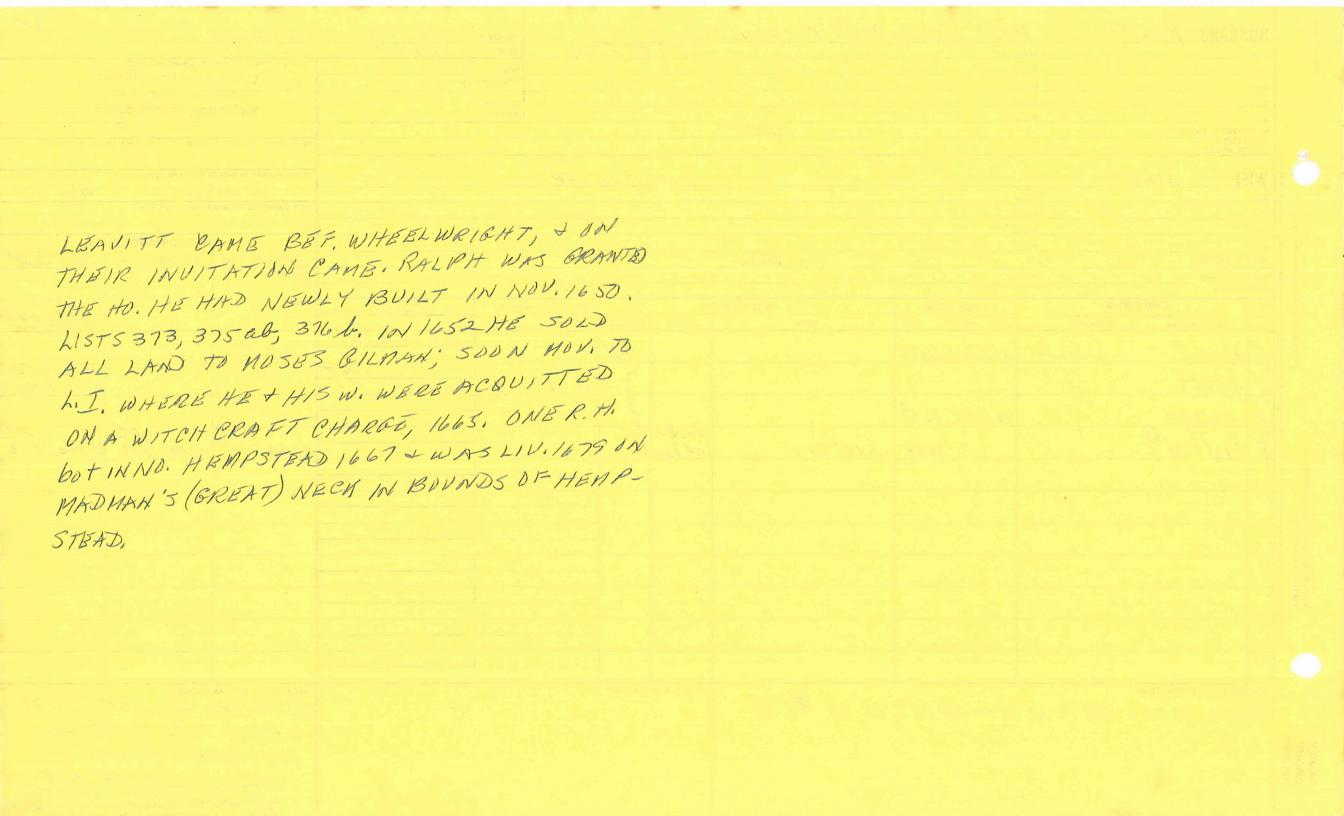 LEAVITT CAME BEF. WHEELWRIGHT, & ON
THEIR INVITATION CAME. RALPH WAS GRANTED
THE HO. HE HAD NEWLY BUILT IN NOV. 1650.
LISTS 373, 375ab, 376b. IN 1652 HE SOLD
ALL LAND TO MOSES GILMAN; SOON MOV. TO
L.I. WHERE HE & HIS W. WERE ACQUITTED
ON A WITCHCRAFT CHARGE, 1665. ONE R.H.
bot IN NO. HEMPSTEAD 1667 & WAS LIV. 1679 ON
MADMAN'S (GREAT) NECK IN BOUNDS OF HEMP-
STEAD.